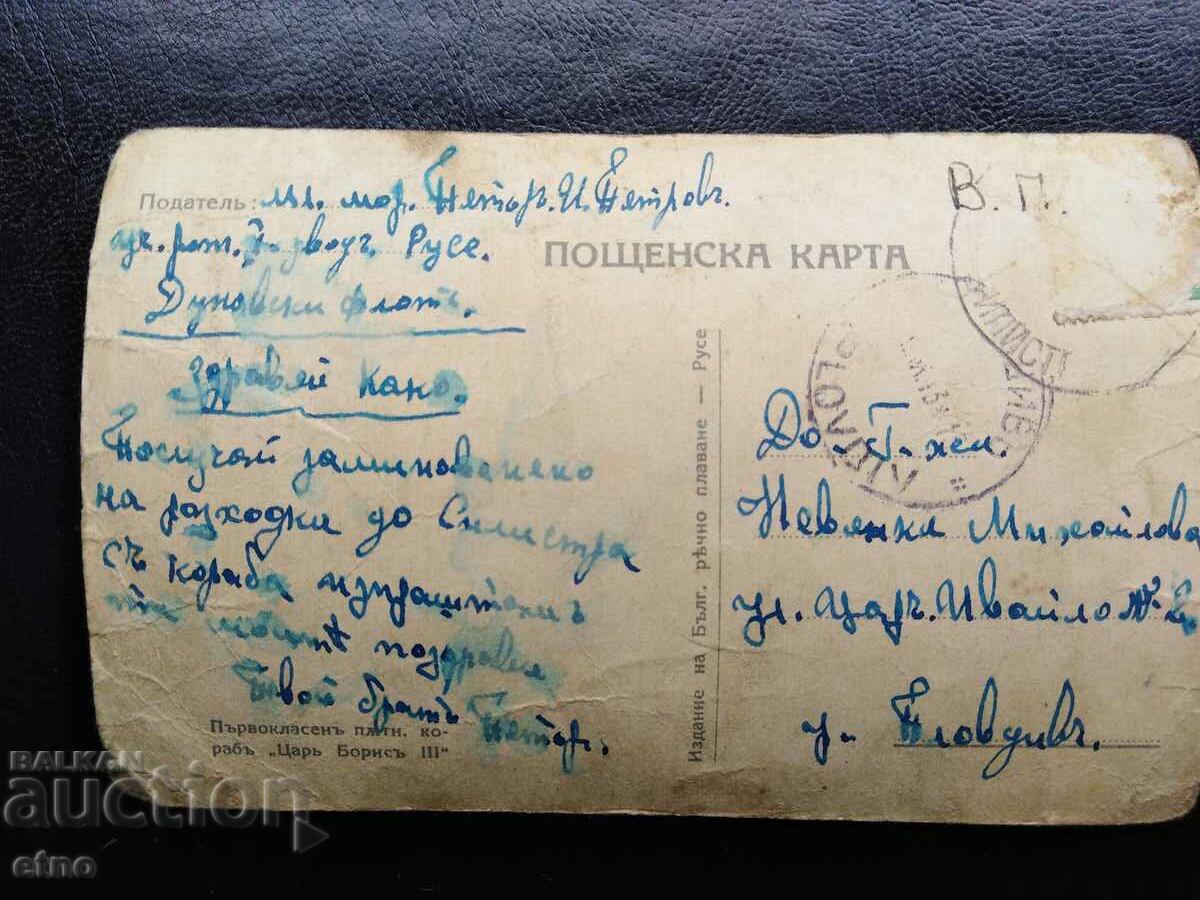 Податель: мл. мор. Петъръ. И. Петровъ.
уч. рот. I. взводъ Русе.
Дунавски флотъ.
Здравей Како.
По случай заминаванено
на разходка до Силистра
съ кораба изпращамъ
ти моитѣ поздрави
Твой братъ Петър.
Първокласенъ пътн. ко-
рабъ „Царь Борисъ III"
Издание на Бълг. рѣчно плаване — Русе
ПОЩЕНСКА КАРТА
В. П.
СИЛИСТ
ПЛОВДИВЪ
До Г-жа.
Невянка Михайлова
ул. Царъ. Ивайло №
г. Пловдивъ.
BALKAN
auction
etno